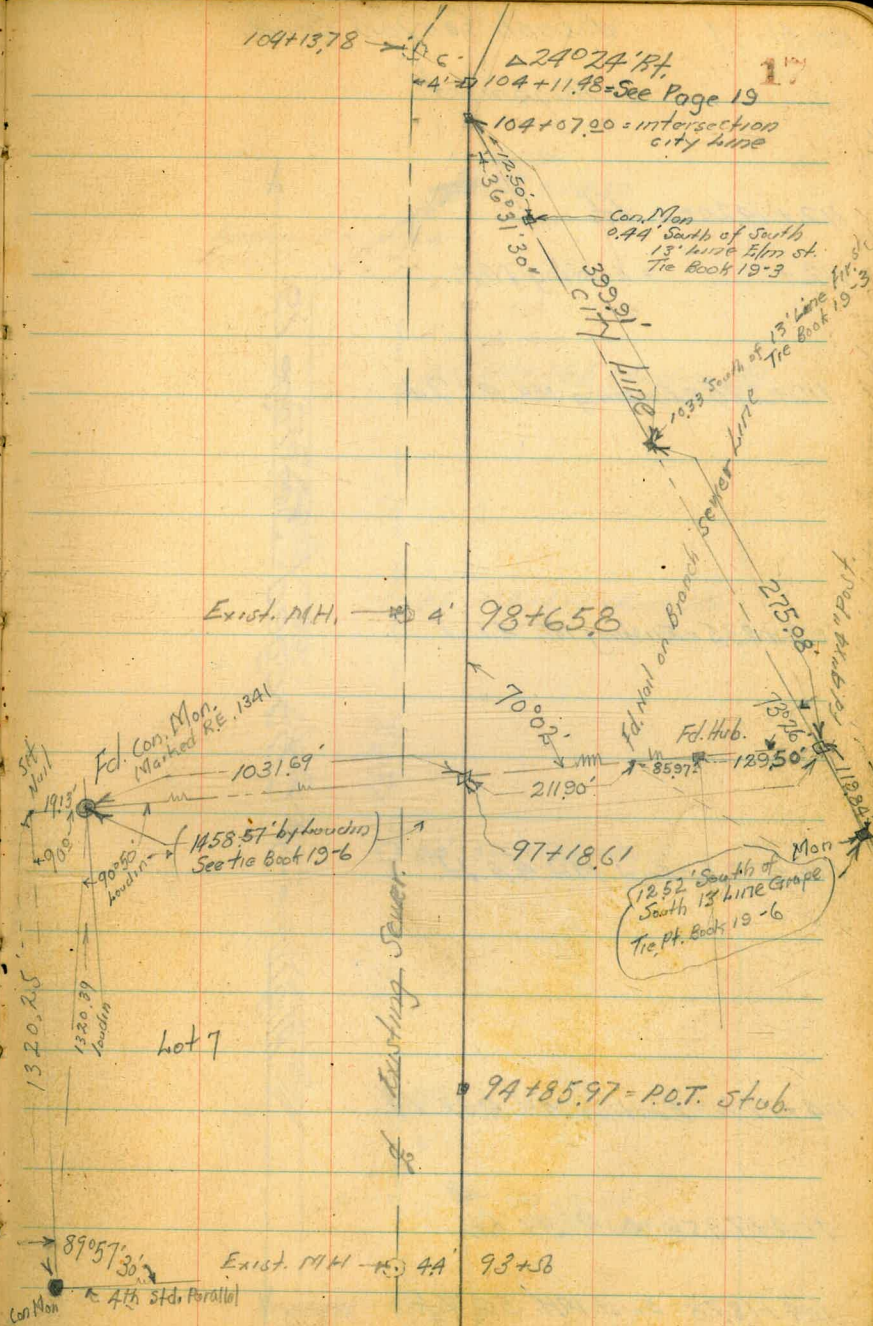 17
104+13.78
6'
∆24°24' Rt.
4' 104+11.48=See Page 19
104+07.00 = intersection
city Line
12.50'
36°31'30"
Con. Mon
0.44' South of South
13' Line Elm st.
Tie Book 19-3
399.91'
City Line
10.33' South of 13' Line Fir st.
Tie Book 19-3
Fd. Nail on Branch Sewer Line
275.98'
Exist. M.H. 4' 98+65.8
70°02'
73°26'
Fd. Con. Mon.
Marked R.E. 1341
Set Nail
19.13'
90°
1031.69'
Fd. Hub.
211.90'
85.97
129.50'
112.84
Mon
90°50'
Loudin
(1458.57' by Loudin)
See tie Book 19-6
97+18.61
12.52' South of
South 13' Line Grape
Tie Pt. Book 19-6
1320.25'
1320.39
Loudin
Lot 7
℄ Existing Sewer
94+85.97 = P.O.T. Stub.
89°57'30"
Exist. MH 4.4' 93+56
Con Mon
4th Std. Parallel